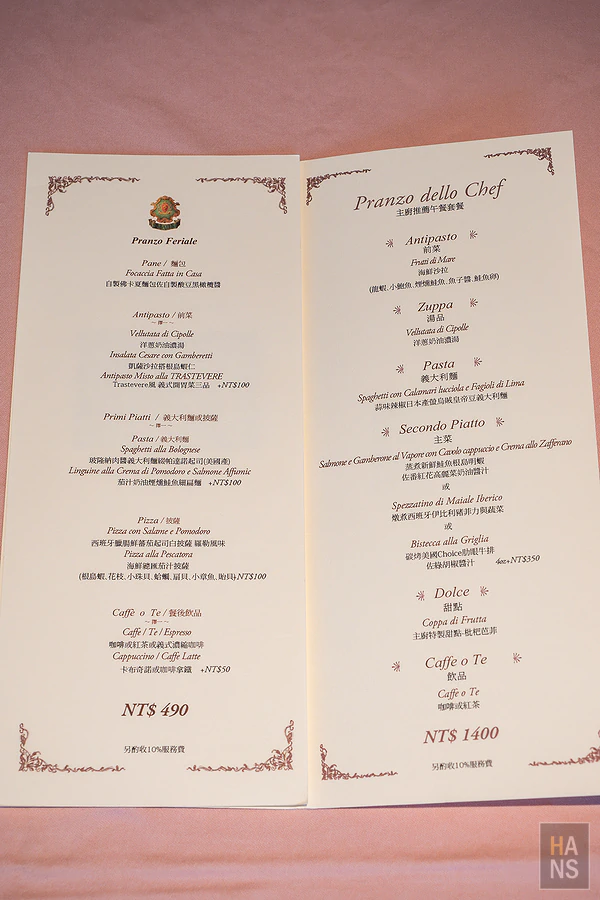 Pranzo Feriale
Pane / 麵包
Focaccia Fatta in Casa
自製佛卡夏麵包佐自製酸豆黑橄欖醬
Antipasto / 前菜
~擇一~
Vellutata di Cipolle
洋蔥奶油濃湯
Insalata Cesare con Gamberetti
凱薩沙拉搭根島蝦仁
Antipasto Misto alla TRASTEVERE
Trastevere風 義式開胃菜三品 +NT$100
Primi Piatti / 義大利麵或披薩
~擇一~
Pasta / 義大利麵
Spaghetti alla Bolognese
玻隆納肉醬義大利麵綴帕達諾起司(美國產)
Linguine alla Crema di Pomodoro e Salmone Affumic
茄汁奶油煙燻鮭魚細扁麵 +NT$100
Pizza / 披薩
Pizza con Salame e Pomodoro
西班牙臘腸鮮蕃茄起司白披薩 羅勒風味
Pizza alla Pescatora
海鮮總匯茄汁披薩
(根島蝦、花枝、小珠貝、蛤蠣、扇貝、小章魚、貽貝)+NT$100
Caffè o Te / 餐後飲品
~擇一~
Caffe / Te / Espresso
咖啡或紅茶或義式濃縮咖啡
Cappuccino / Caffè Latte
卡布奇諾或咖啡拿鐵 +NT$50
NT$ 490
另酌收10%服務費
Pranzo dello Chef
主廚推薦午餐套餐
Antipasto
前菜
Frutti di Mare
海鮮沙拉
(龍蝦、小鮑魚、煙燻鮭魚、魚子醬、鮭魚卵)
Zuppa
湯品
Vellutata di Cipolle
洋蔥奶油濃湯
Pasta
義大利麵
Spaghetti con Calamari lucciola e Fagioli di Lima
蒜味辣椒日本產螢烏賊皇帝豆義大利麵
Secondo Piatto
主菜
Salmone e Gamberone al Vapore con Cavolo cappuccio e Crema allo Zafferano
蒸煮新鮮鮭魚根島明蝦
佐番紅花高麗菜奶油醬汁
或
Spezzatino di Maiale Iberico
燉煮西班牙伊比利豬菲力與蔬菜
或
Bistecca alla Griglia
碳烤美國Choice肋眼牛排
佐綠胡椒醬汁 4oz+NT$350
Dolce
甜點
Coppa di Frutta
主廚特製甜點-枇杷芭菲
Caffe o Te
飲品
Caffe o Te
咖啡或紅茶
NT$ 1400
另酌收10%服務費
HANS